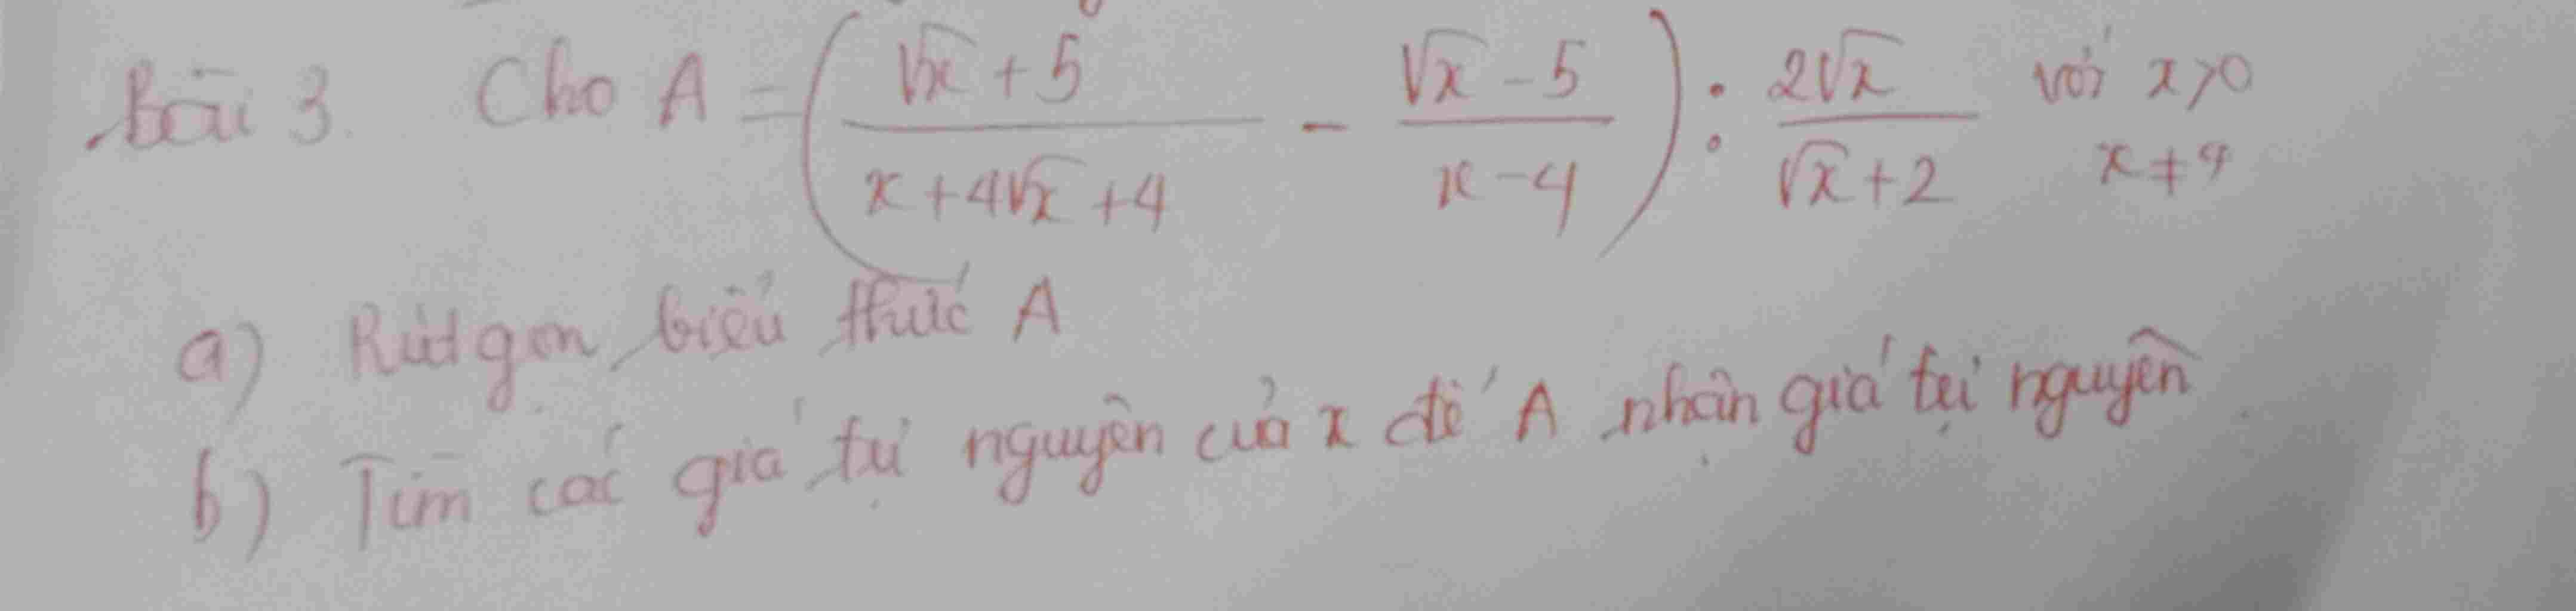 Bài 3. Cho A = ( (√x + 5) / (x + 4√x + 4) - (√x - 5) / (x - 4) ) : 2√x / (√x + 2) với x > 0 x ≠ 4
a) Rút gọn biểu thức A
b) Tìm các giá trị nguyên của x để A nhận giá trị nguyên